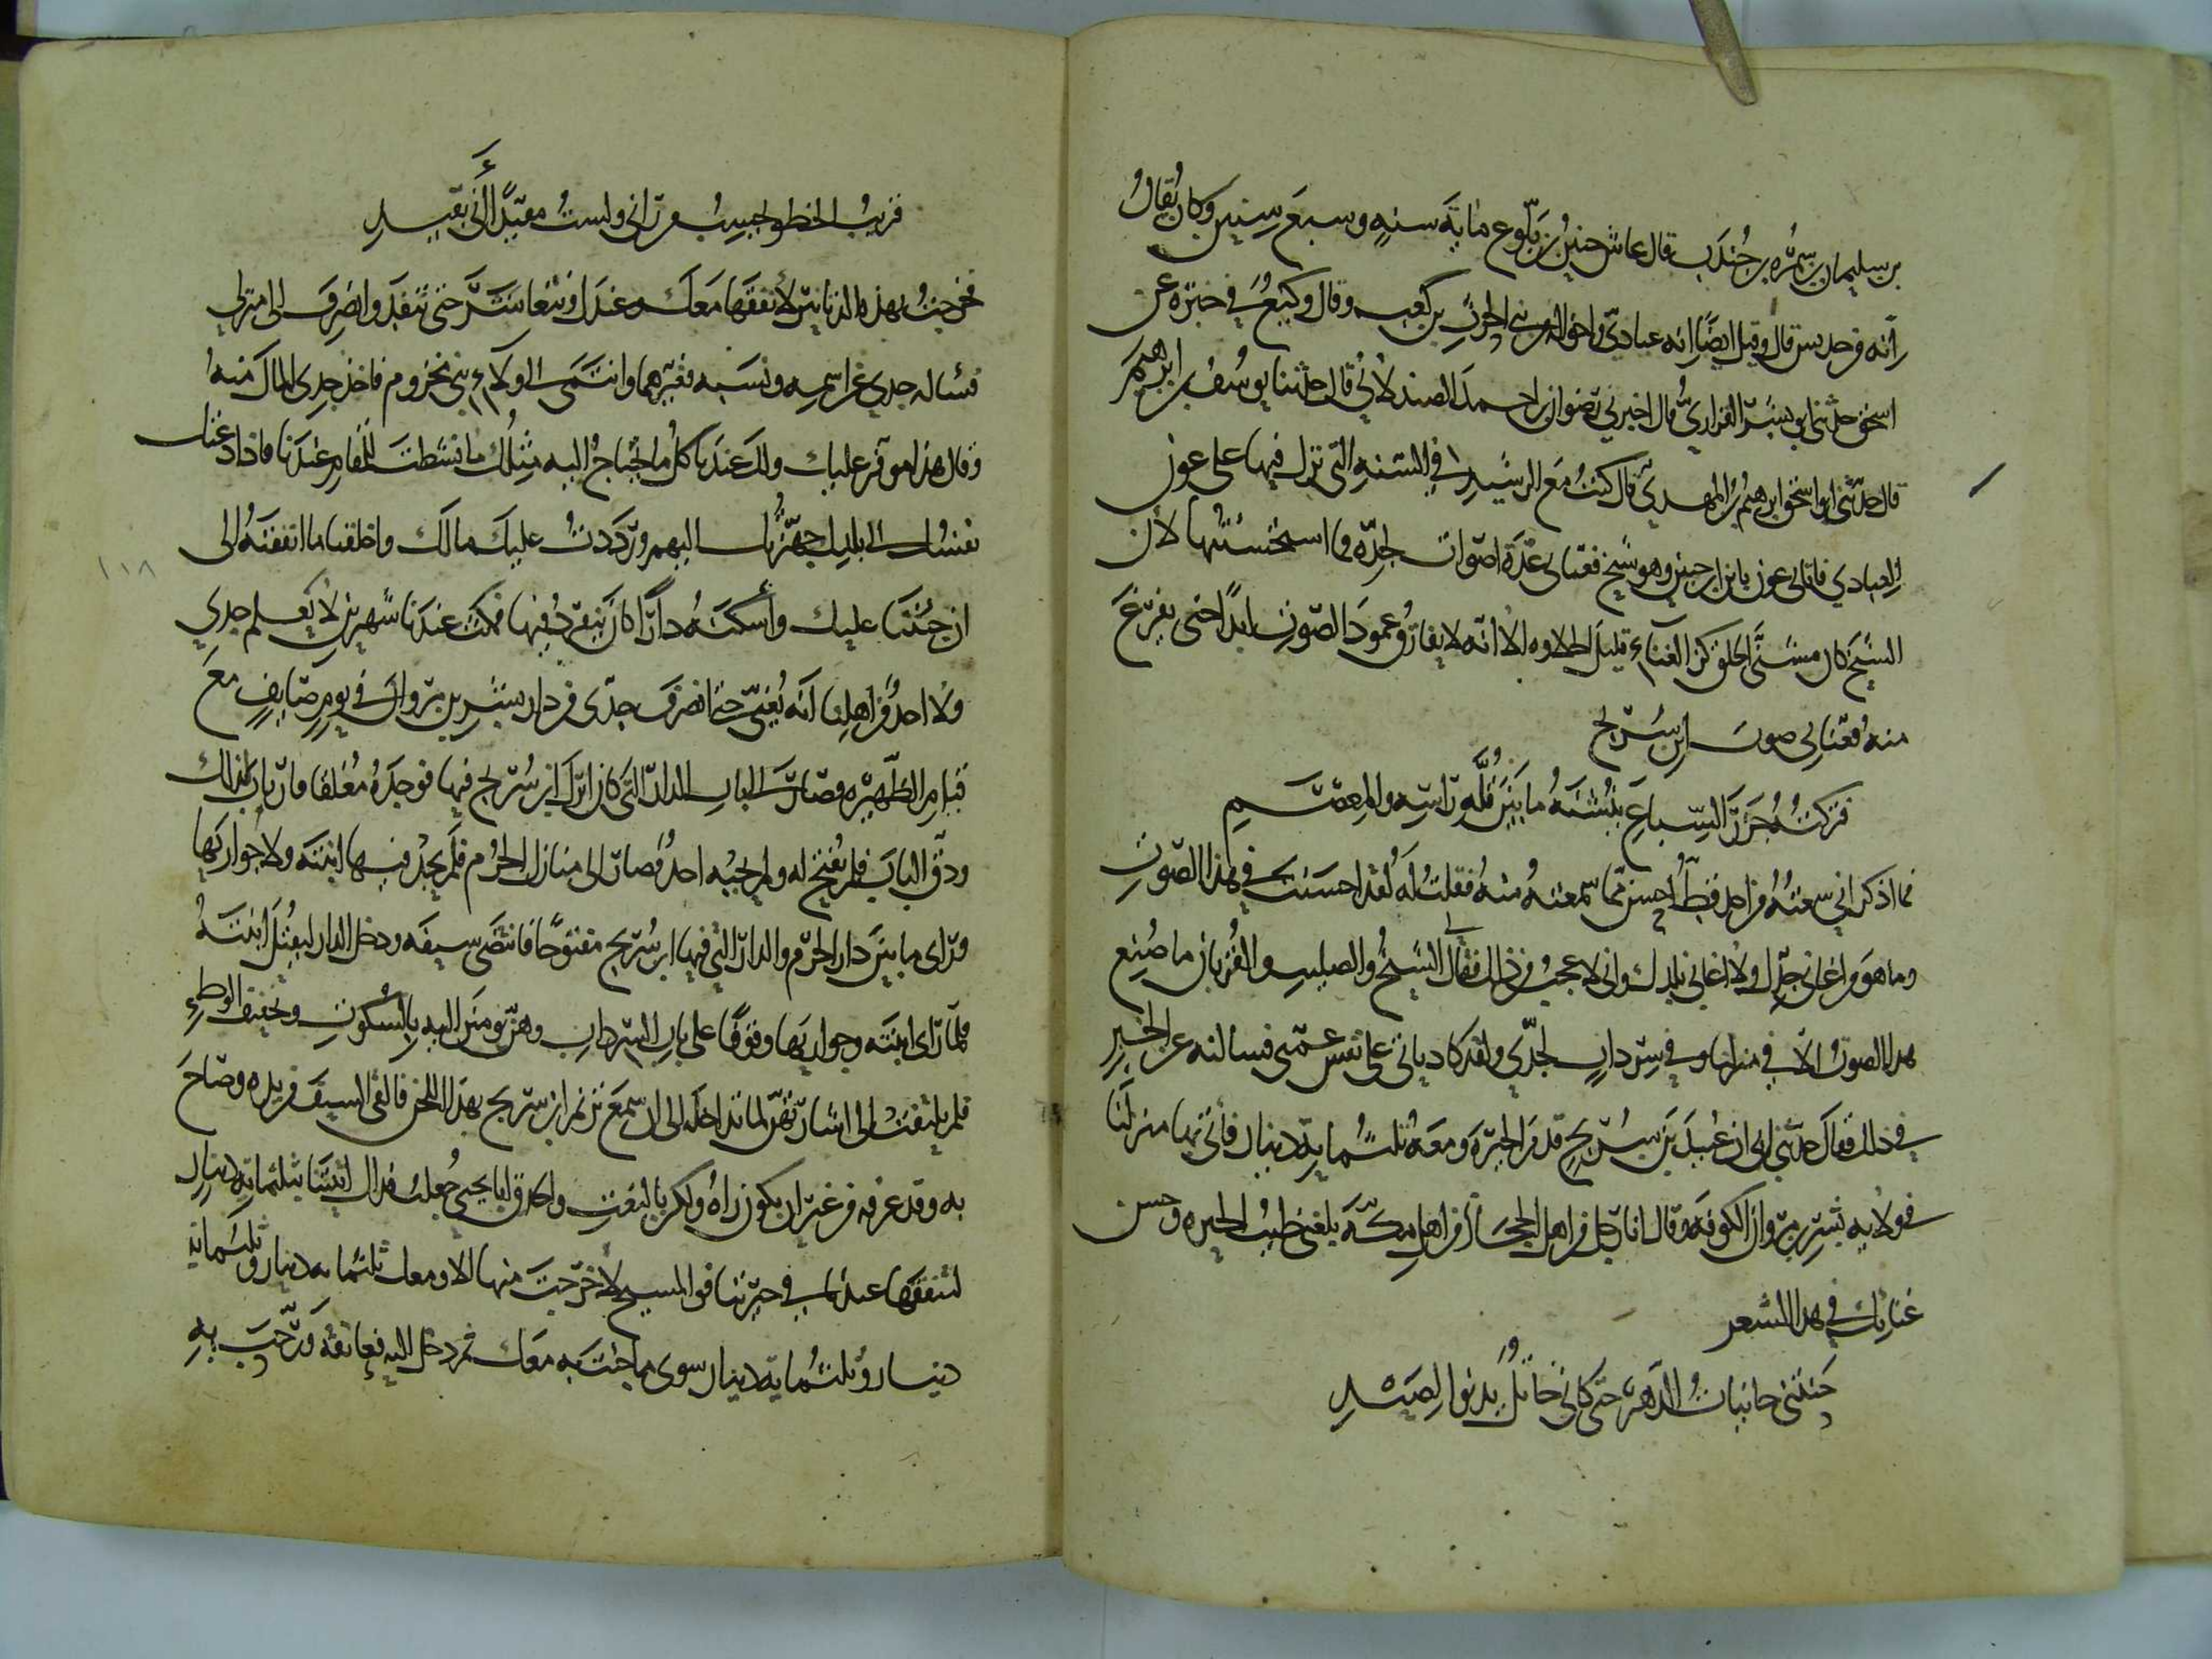 بن سليمان بن سمرة بن جندب قال عاش حنين بن بلوع مائة سنة وسبع سنين وكان يقال
انه من جديس قال وقيل ايضا انه عبادي واخواله من بني الحرث بن كعب وقال وكيع في خبره عن
اسحق حدثني ابو بشر الفزاري قال اخبرني رضوان بن احمد الصيدلاني قال حدثنا يوسف بن ابرهيم
قال حدثني ابو اسحق ابرهيم بن المهدي قال كنت مع الرشيد في السنة التي نزل فيها على عون
العبادي فاتاني عون بابن ابن حنين وهو شيخ فغناني عدة اصوات لجده فما استحسنتها لان
الشيخ كان مشنأ الخلق كز الغناء قليل الحلاوة الا انه لا يفارق عمود الصوت ابدا حتى يفرغ
منه فغناني صوت ابن سريج
فتركته جزر السباع ينشنه ما بين قلة راسه والمعصم
فما اذكر اني سمعته من احد قط احسن مما سمعته منه فقلت له لقد احسنت في هذا الصوت
وما هو من اغاني جدك ولا من اغاني بلدك واني لاعجب من ذلك فقال لي الشيخ والصليب والقربان ما صنع
هذا الصوت الا في منزلنا وفي سرداب لجدي ولقد كاد ياتي على نفس عمتي فسالته عن الخبر
في ذلك فقال حدثني ابي ان عبيد بن سريج قدم الحيرة ومعه ثلثماية دينار فأتى بها منزلنا
في ولاية بشر بن مروان الكوفة وقال انا رجل من اهل الحجاز من اهل مكة بلغني طيب الحيرة وحسن
غنائك في هذا الشعر
حنتني حانيات الدهر حتى كاني خاتل يدنو لصيد
قريب الخطو يحسب من راني ولست مقيدا أني بقيد
فخرجت بهذه الدنانير لأنفقها معك وعندك ونتعاشر حتى تنفد وانصرف الى منزلي
فسأله جدي عن اسمه ونسبه فغيرهما وانتمى الى ولاء بني مخزوم فاخذ جدي المال منه
وقال هذا موفر عليك ولك عندنا كل ما يحتاج اليه مثلك ما نشطت للمقام عندنا فاذا دعتك
نفسك الى بلدك جهزناك اليهم ورددت عليك مالك واخلفنا ما انفقته الى
ان جئتنا عليك وأسكنه دارا كان ينفرد فيها فمكث عندنا شهرين لا يعلم جدي
ولا احد من اهلنا انه يغني حتى انصرف جدي من دار بشر بن مروان في يوم صايف مع
قيام الظهيرة فصار الى باب الدار التي كان انزل ابن سريج فيها فوجده مغلقا فارتاب بذلك
ودق الباب فلم يفتح له ولم يجبه احد فصار الى منازل الحرم فلم يجد فيها ابنته ولا جواريها
وراى ما بين دار الحرم والدار التي فيها ابن سريج مفتوحا فانتضى سيفه ودخل الدار ليقتل ابنته
فلما راى ابنته وجواريها وقوفا على باب السرداب وهن يومئن اليه بالسكوت وتخفيف الوطء
فلم يلتفت الى اشارتهن لما تداخله الى ان سمع ترنم ابن سريج بهذا اللحن فالقى السيف من يده وصاح
به وقد عرفه من غير ان يكون راه ولكن بالنعت والحذق ابا يحيى جعلت فداك اتيتنا بثلثماية دينار
لتنفقها عندنا في حيرتنا فوالمسيح لا خرجت منها الا ومعك ثلثماية دينار وثلثماية
دينار وثلثماية دينار سوى ما جئت به معك ثم دخل اليه فعانقه ورحب به
١١٨